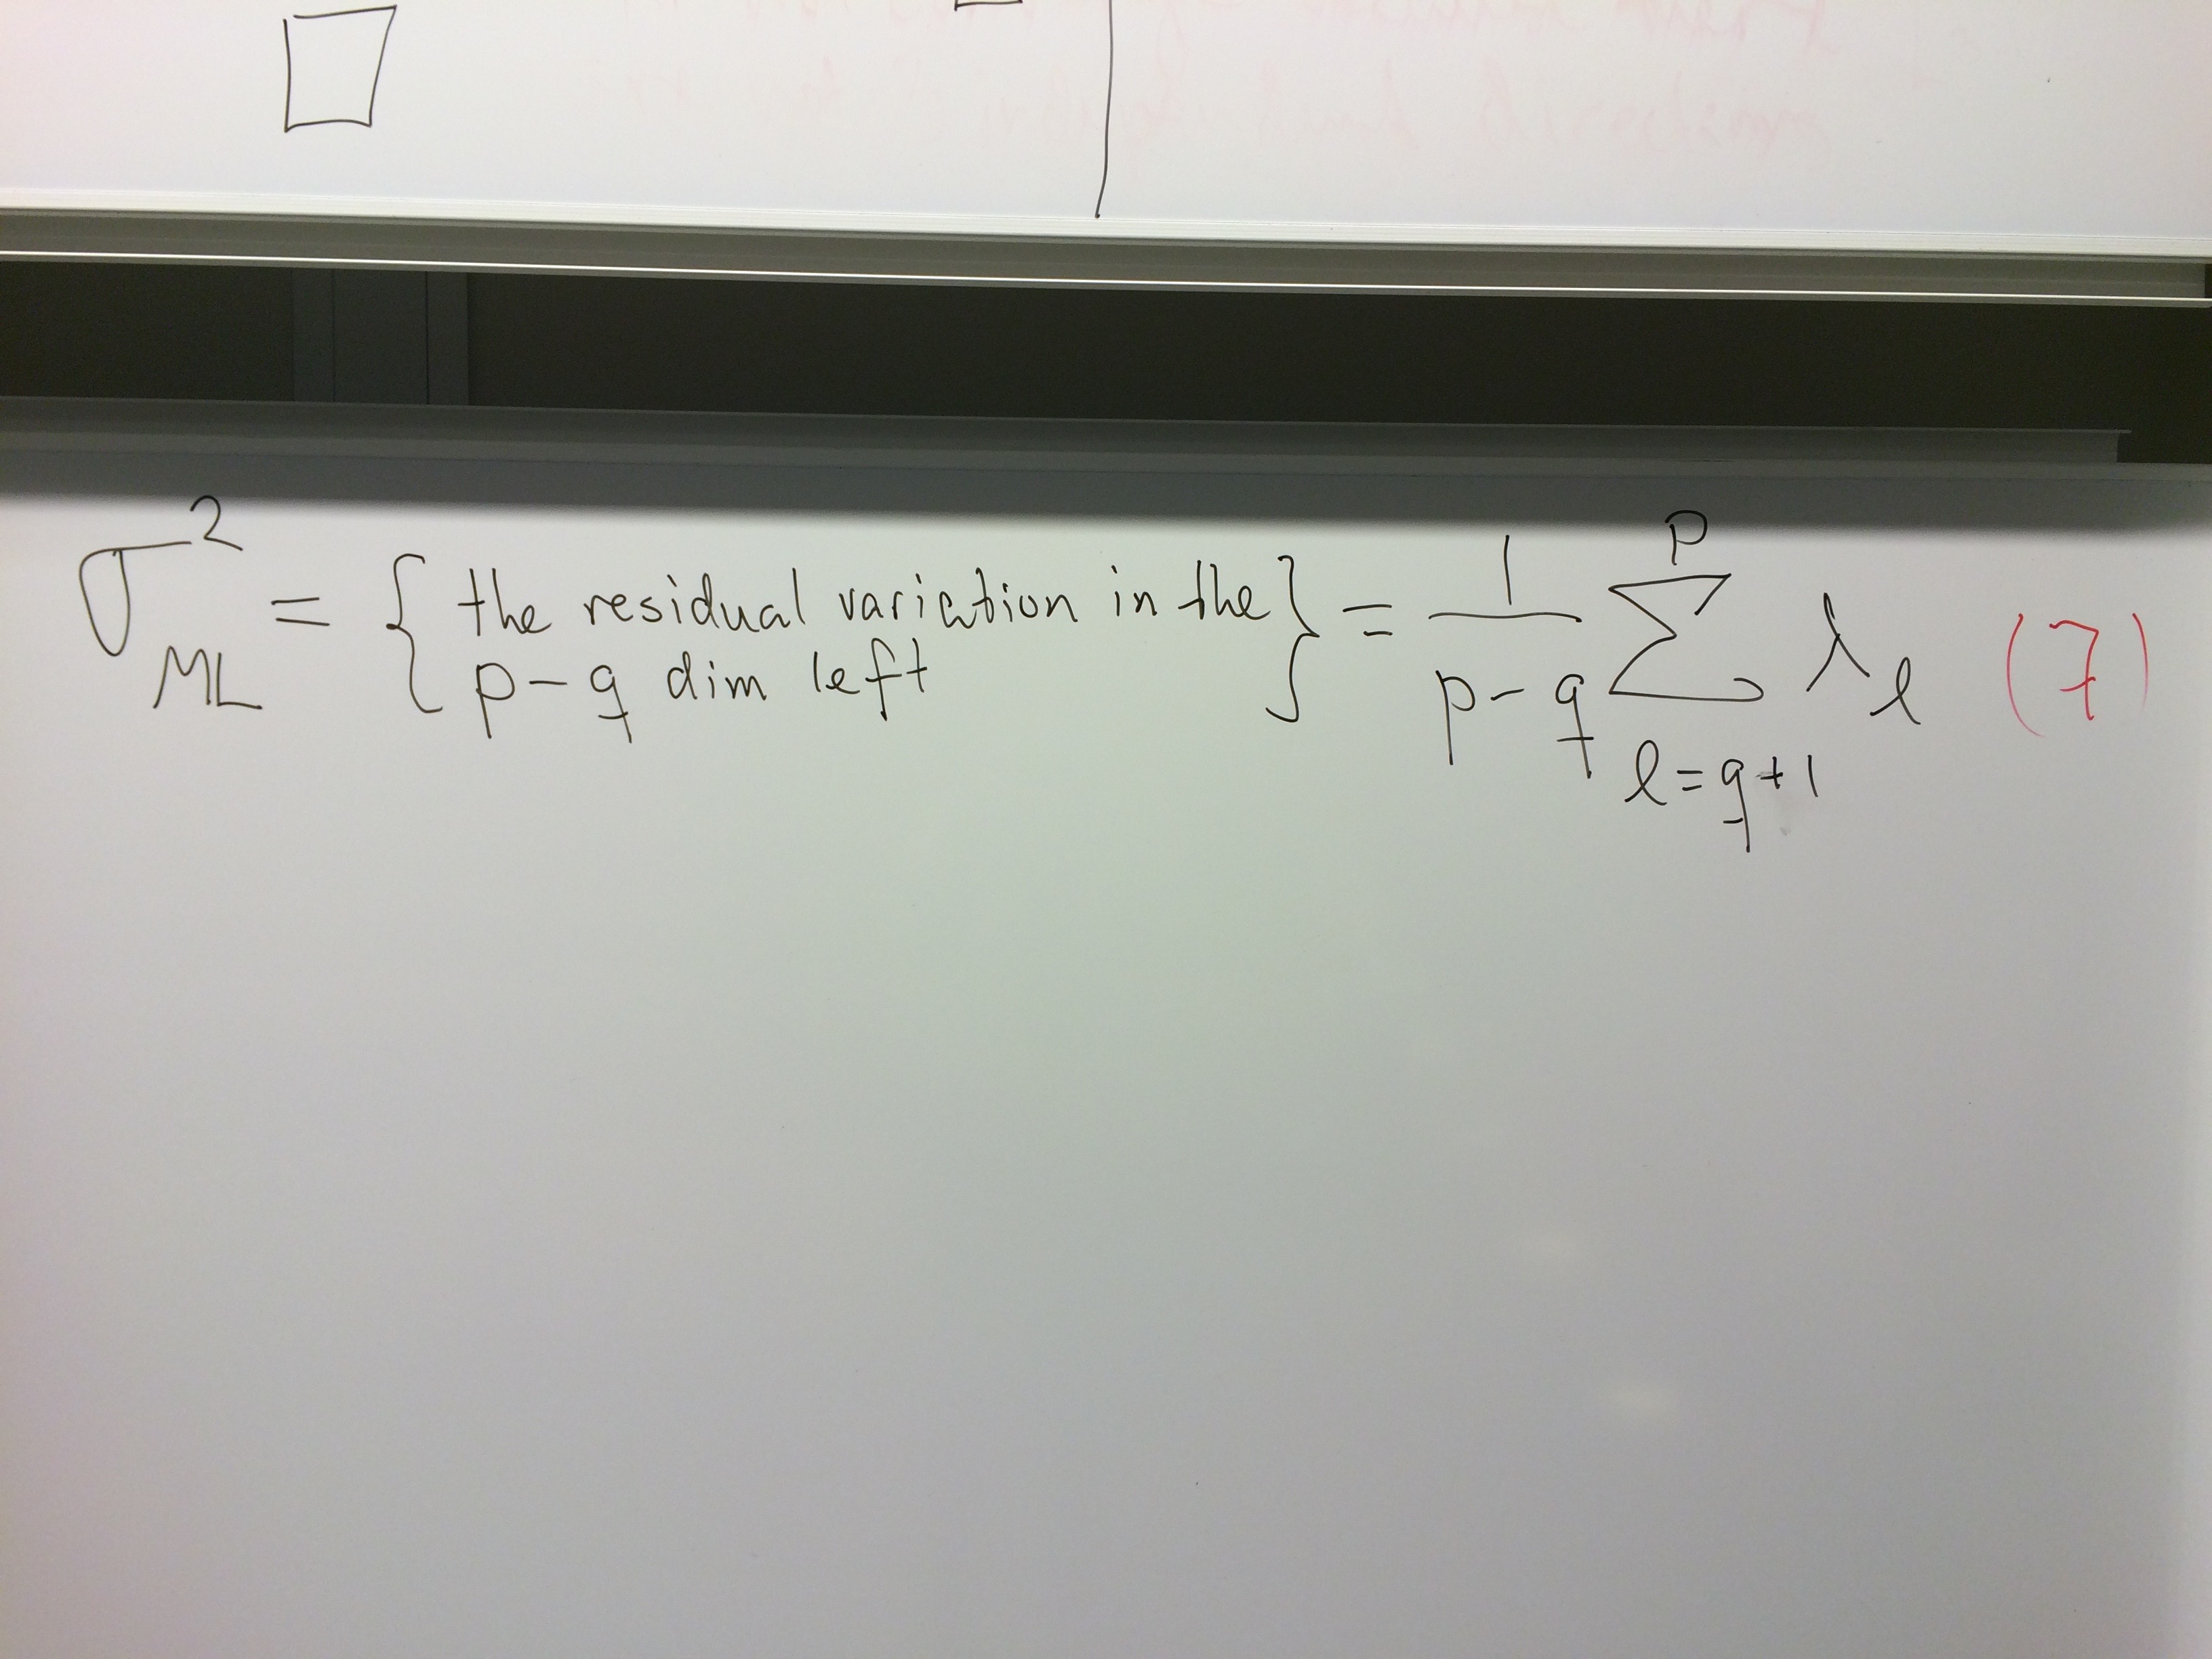 σ²_ML = { the residual variation in the p-q dim left } = 1/(p-q) Σ_{l=q+1}^{p} λ_l (7)